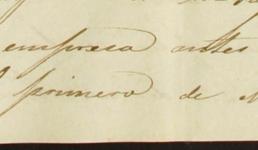 empresa antes
primero de